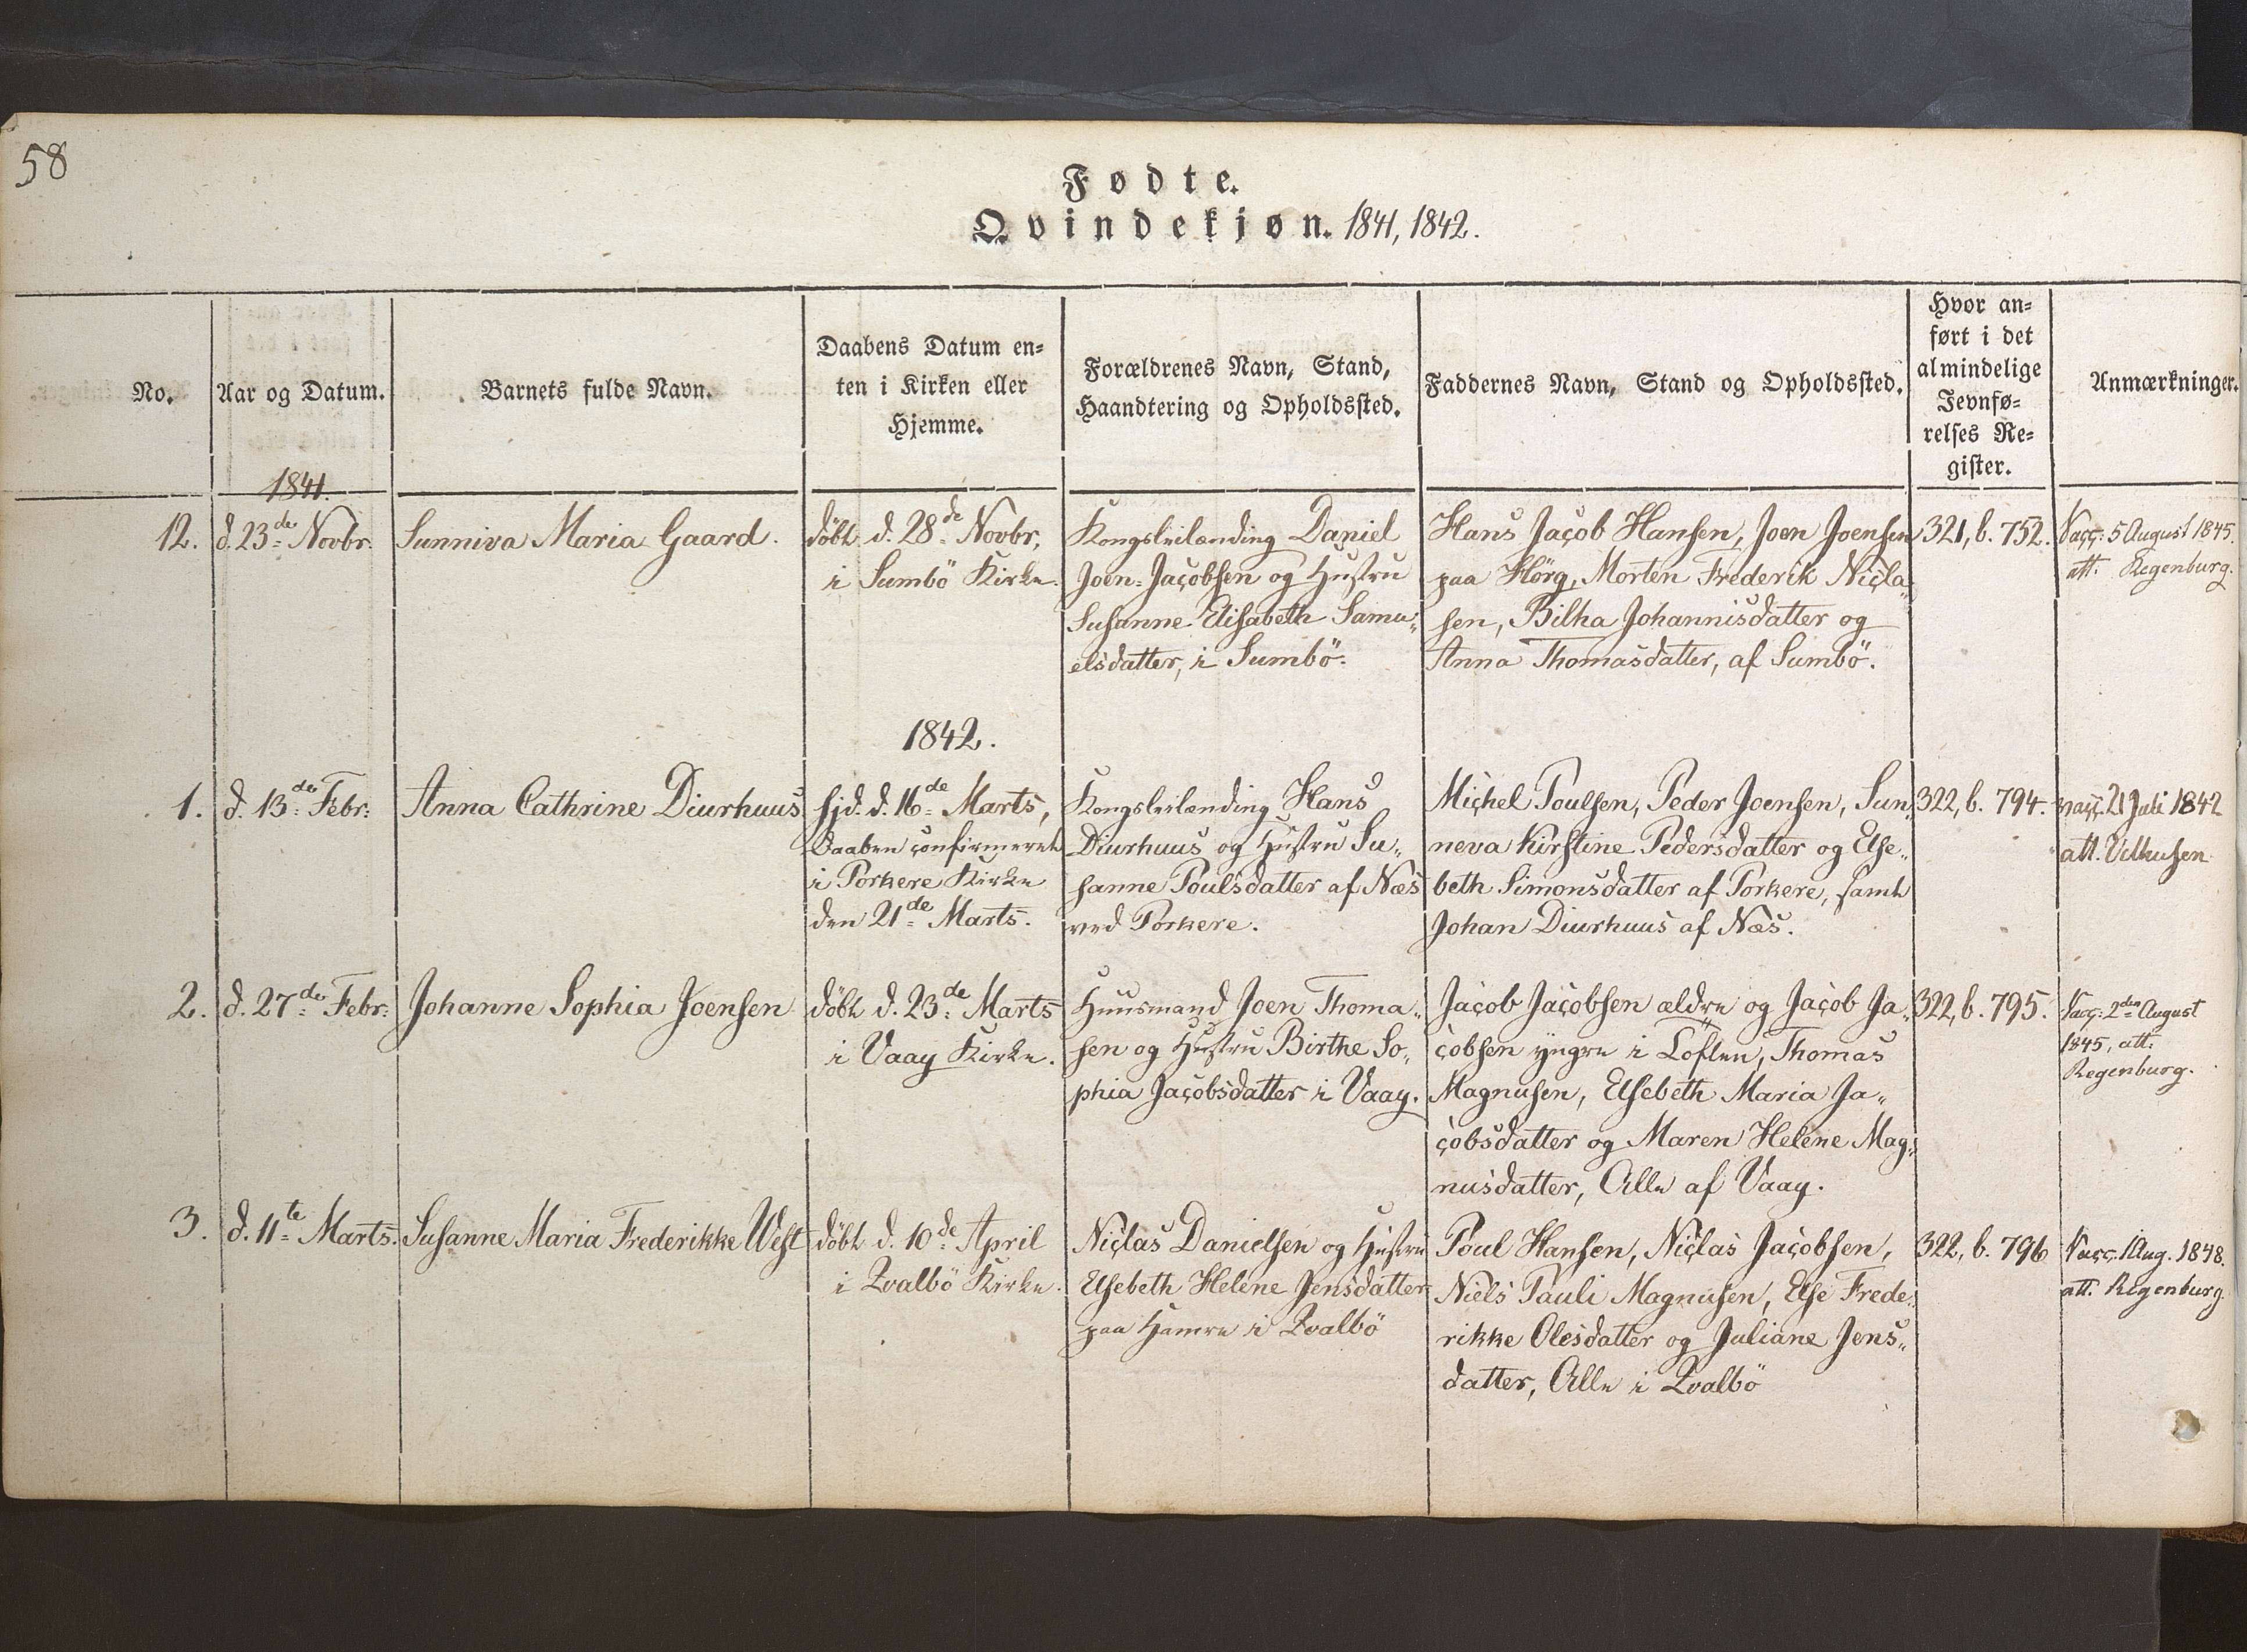 58
Fødte.
Qvindekjøn. 1841, 1842.
No.
Aar og Datum.
Barnets fulde Navn.
Daabens Datum en-
ten i Kirken eller
Hjemme.
Forældrenes Navn, Stand,
Haandtering og Opholdssted.
Faddernes Navn, Stand og Opholdssted.
Hvor an-
ført i det
almindelige
Jevnfø-
relses Re-
gister.
Anmærkninger.
1841.
12.
d. 23de Novbr.
Sunniva Maria Gaard.
döbt d. 28de Novbr.
i Sumbö Kirke.
Kongsleilænding Daniel
Joen-Jacobsen og Hustru
Susanne Elisabeth Samu-
elsdatter, i Sumbö.
Hans Jacob Hansen, Joen Joensen
paa Hörg, Morten Frederik Nicla-
sen, Bilha Johannisdatter og
Anna Thomasdatter, af Sumbö.
321, b. 752.
Vacc: 5 August 1845.
att. Regenburg.
1842.
1.
d. 13de Febr:
Anna Cathrine Diurhuus
hjd. d. 16de Marts,
Daaben confirmeret
i Porkere Kirke
den 21de Marts.
Kongsleilænding Hans
Diurhuus og Hustru Su-
sanne Poulsdatter af Næs
ved Porkere.
Michel Poulsen, Peder Joensen, Sun-
neva Kirstine Pedersdatter og Else-
beth Simonsdatter af Porkere, samt
Johan Diurhuus af Næs.
322, b. 794.
vacc. 21 Juli 1842
att. Velhusen
2.
d. 27de Febr:
Johanne Sophia Joensen
döbt d. 23de Marts
i Vaag Kirke.
Huusmand Joen Thoma-
sen og Hustru Birthe So-
phia Jacobsdatter i Vaag.
Jacob Jacobsen ældre og Jacob Ja-
cobsen yngre i Löften, Thomas
Magnusen, Elsebeth Maria Ja-
cobsdatter og Maren Helene Mag-
nusdatter, Alle af Vaag.
322, b. 795.
Vacc: 2den August
1845, att:
Regenburg.
3.
d. 11te Marts.
Susanne Maria Frederikke West
döbt d. 10de April
i Qvalbö Kirke.
Niclas Danielsen og Hustru
Elsebeth Helene Jensdatter
paa Hamre i Qvalbö
Poul Hansen, Niclas Jacobsen,
Niels Pauli Magnusen, Else Frede-
rikke Olesdatter og Juliane Jens-
datter, Alle i Qvalbö
322, b. 796
Vacc. 1 Aug. 1848.
att. Regenburg.